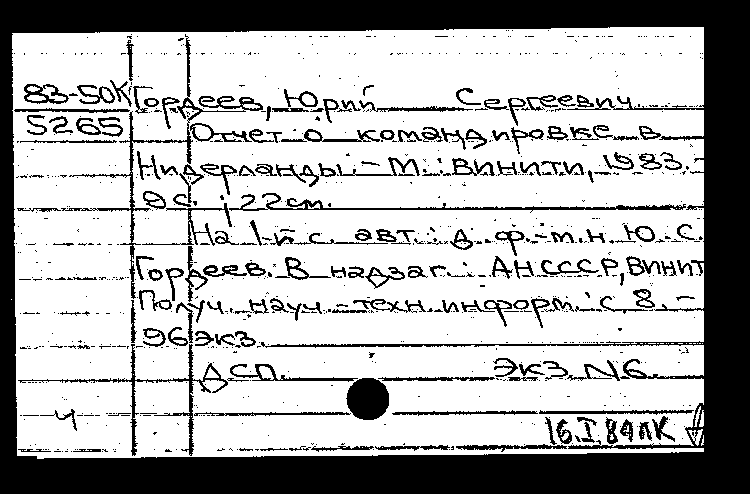 83-50К Гордеев, Юрий Сергеевич
5265 Отчет о командировке в
Нидерланды. - М. : ВИНИТИ, 1983. -
9 с. ; 22 см.
На 1-й с. авт. : д. ф.-т. н. Ю. С.
Гордеев. В надзаг. : АН СССР, ВИНИТ
Получ. науч.-техн. информ. : с. 8. -
96 экз.
ДСП. Экз. N6.
Ч
16.I.84 ЛК